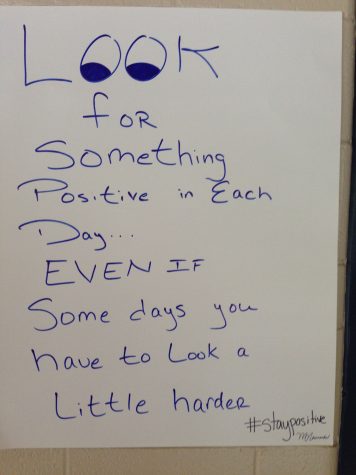 LOOK
foR
Something
Positive in Each
Day...
EVEN IF
Some days you
have to Look a
Little hardeR
#staypositive